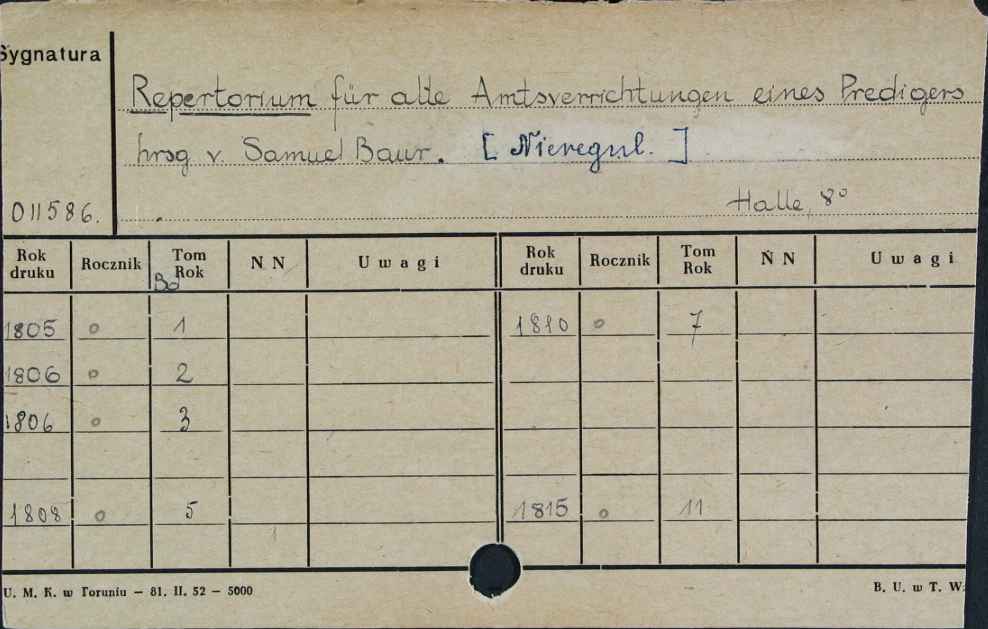 Sygnatura
Repertorium für alle Amtsverrichtungen eines Predigers
hrsg v. Samuel Baur. [Nieregul.]
011586.
Halle, 8°
Rok druku Rocznik Tom Rok N N Uwagi Rok druku Rocznik Tom Rok N N Uwagi
Bd
1805 o 1 1810 o 7
1806 o 2
1806 o 3
1808 o 5 1815 o 11
U. M. K. w Toruniu — 81. II. 52 — 5000
B. U. w T. W.